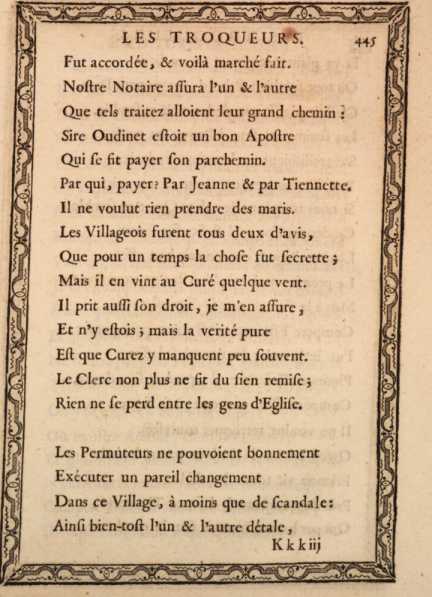 LES TROQUEURS. 445
Fut accordée, & voilà marché fait.
Noſtre Notaire aſſura l'un & l'autre
Que tels traitez alloient leur grand chemin :
Sire Oudinet eſtoit un bon Apoſtre
Qui ſe fit payer ſon parchemin.
Par qui, payer? Par Jeanne & par Tiennette.
Il ne voulut rien prendre des maris.
Les Villageois furent tous deux d'avis,
Que pour un temps la choſe fut ſecrette ;
Mais il en vint au Curé quelque vent.
Il prit auſſi ſon droit, je m'en aſſure,
Et n'y eſtois ; mais la verité pure
Eſt que Curez y manquent peu ſouvent.
Le Clerc non plus ne fit du ſien remiſe ;
Rien ne ſe perd entre les gens d'Egliſe.
Les Permuteurs ne pouvoient bonnement
Exécuter un pareil changement
Dans ce Village, à moins que de ſcandale :
Ainſi bien-toſt l'un & l'autre détale,
Kkkiij